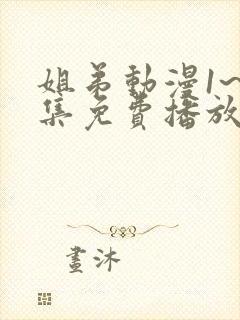 姐弟動漫1~
集免費播放
畫沐